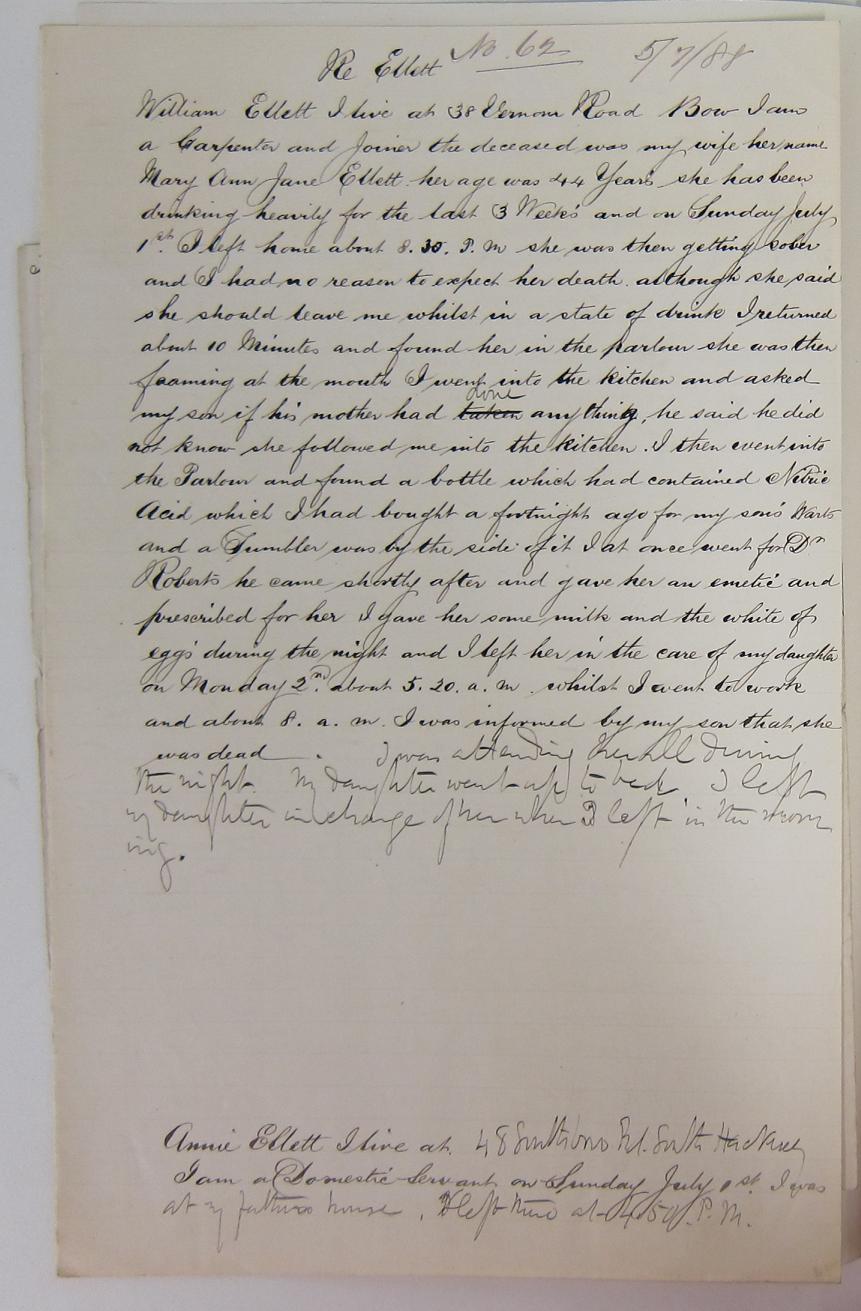 Re Ellett No. 62 5/7/88
William Ellett I live at 38 Vernon Road Bow I am
a Carpenter and Joiner the deceased was my wife her name
Mary Ann Jane Ellett her age was 44 Years she has been
drinking heavily for the last 3 Weeks and on Sunday July
1st. I left home about 8.30. P.M she was then getting sober
and I had no reason to expect her death. although she said
she should leave me whilst in a state of drink I returned
about 10 Minutes and found her in the parlour she was then
foaming at the mouth I went into the kitchen and asked
done
my son if his mother had taken anything, he said he did
not know she followed me into the kitchen. I then went into
the Parlour and found a bottle which had contained Nitric
Acid which I had bought a fortnight ago for my son's Warts
and a Tumbler was by the side of it I at once went for Dr
Roberts he came shortly after and gave her an emetic and
prescribed for her I gave her some milk and the white of
eggs during the night and I left her in the care of my daughter
on Monday 2nd. about 5.20. a.m. whilst I went to work
and about 8. a.m. I was informed by my son that she
was dead. I was attending her all during
the night. My daughter went up to bed I left
my daughter in charge of her when I left in the morn
ing.
Annie Ellett I live at 48 Rd. South Hackney
I am a Domestic Servant on Sunday July 1st. I was
at my fathers house. I left there at 4.50. P.M.